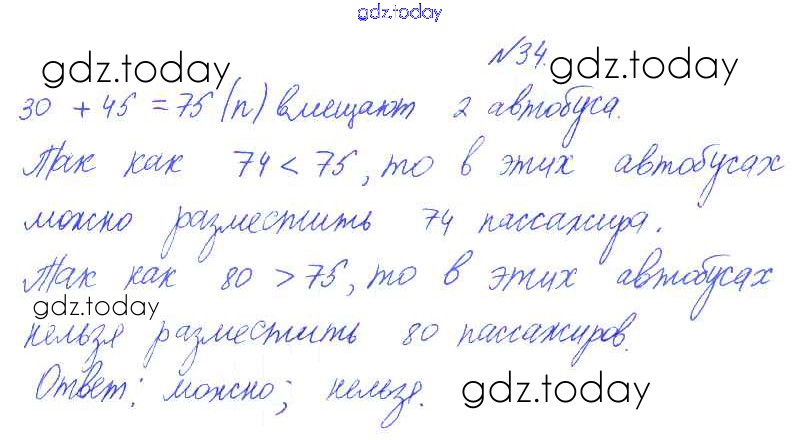 gdz.today
№34.
gdz.today gdz.today
30 + 45 = 75 (п) вмещают 2 автобуса.
Так как 74 < 75, то в этих автобусах
можно разместить 74 пассажира.
Так как 80 > 75, то в этих автобусах
gdz.today
нельзя разместить 80 пассажиров.
Ответ: можно; нельзя.
gdz.today